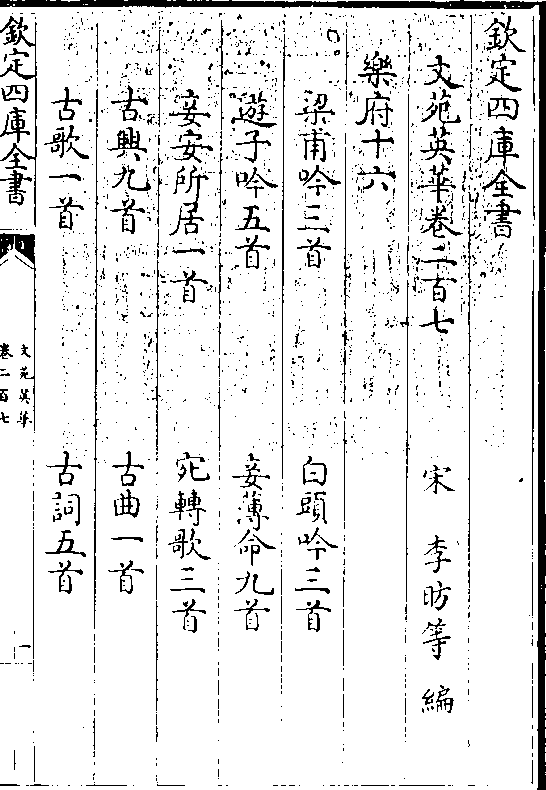 欽定四庫全書
文苑英華卷二百七
宋 李昉等 編
樂府十六
梁甫吟三首 白頭吟三首
遊子吟五首 妾薄命九首
妾安所居一首 宛轉歌三首
古興九首 古曲一首
古歌一首 古詞五首
欽定四庫全書
文苑英華
卷二百七
一